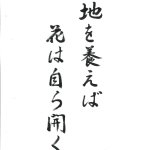 地を養えば
花は自ら開く